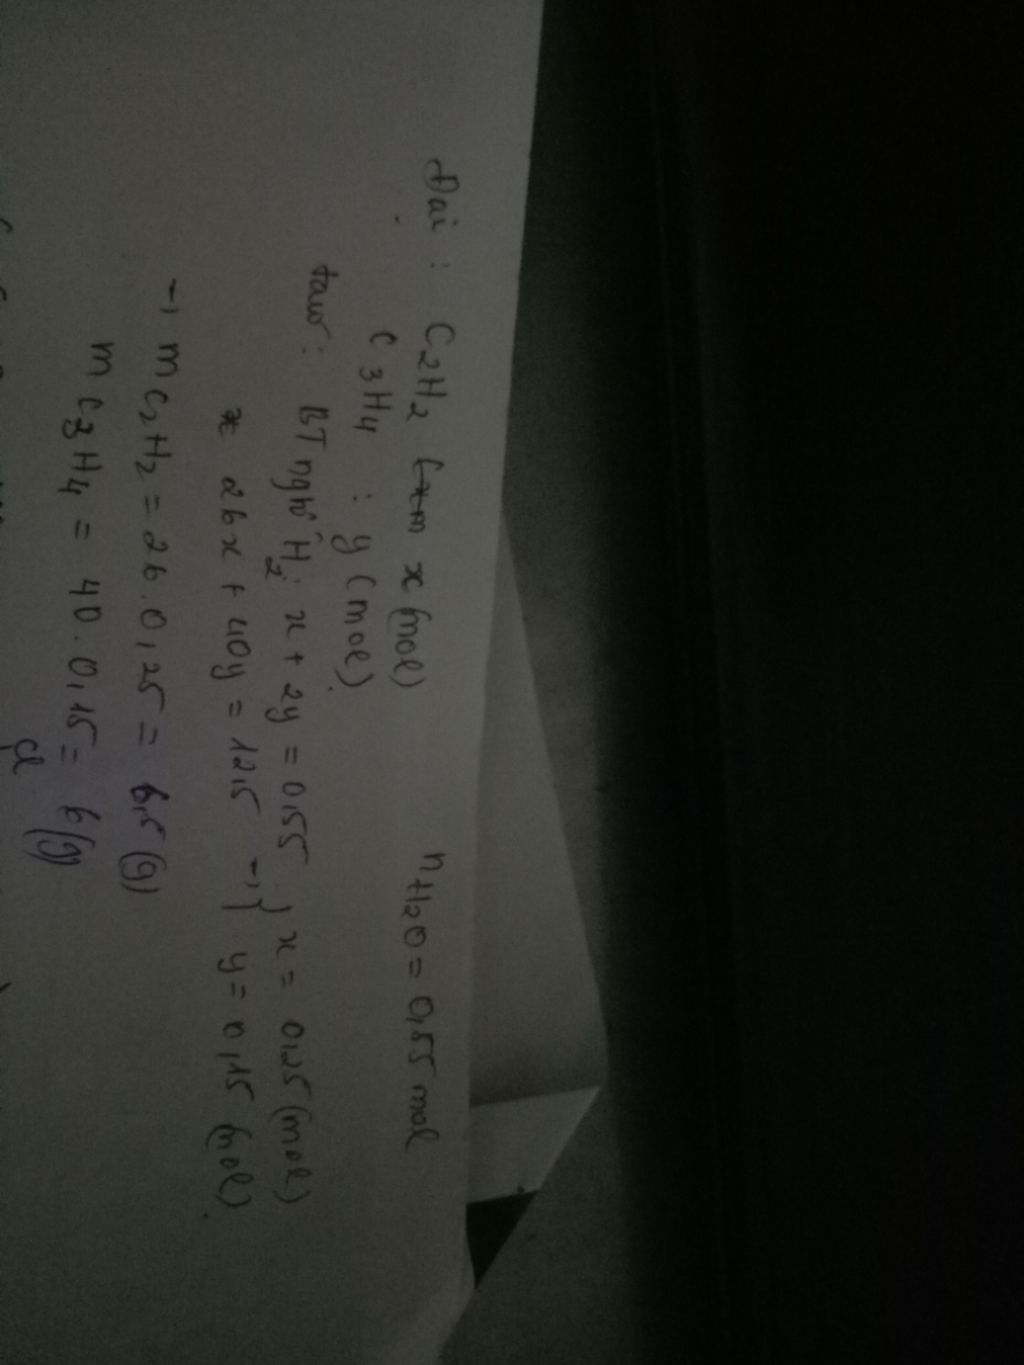 Đặt : C2H2 x (mol) nH2O = 0,55 mol
C3H4 : y (mol)
BT ngtố H2: x + 2y = 0,55 } x = 0,25 (mol)
26x + 40y = 12,5 → } y = 0,15 (mol)
→ mC2H2 = 26.0,25 = 6,5 (g)
mC3H4 = 40.0,15 = 6 (g)